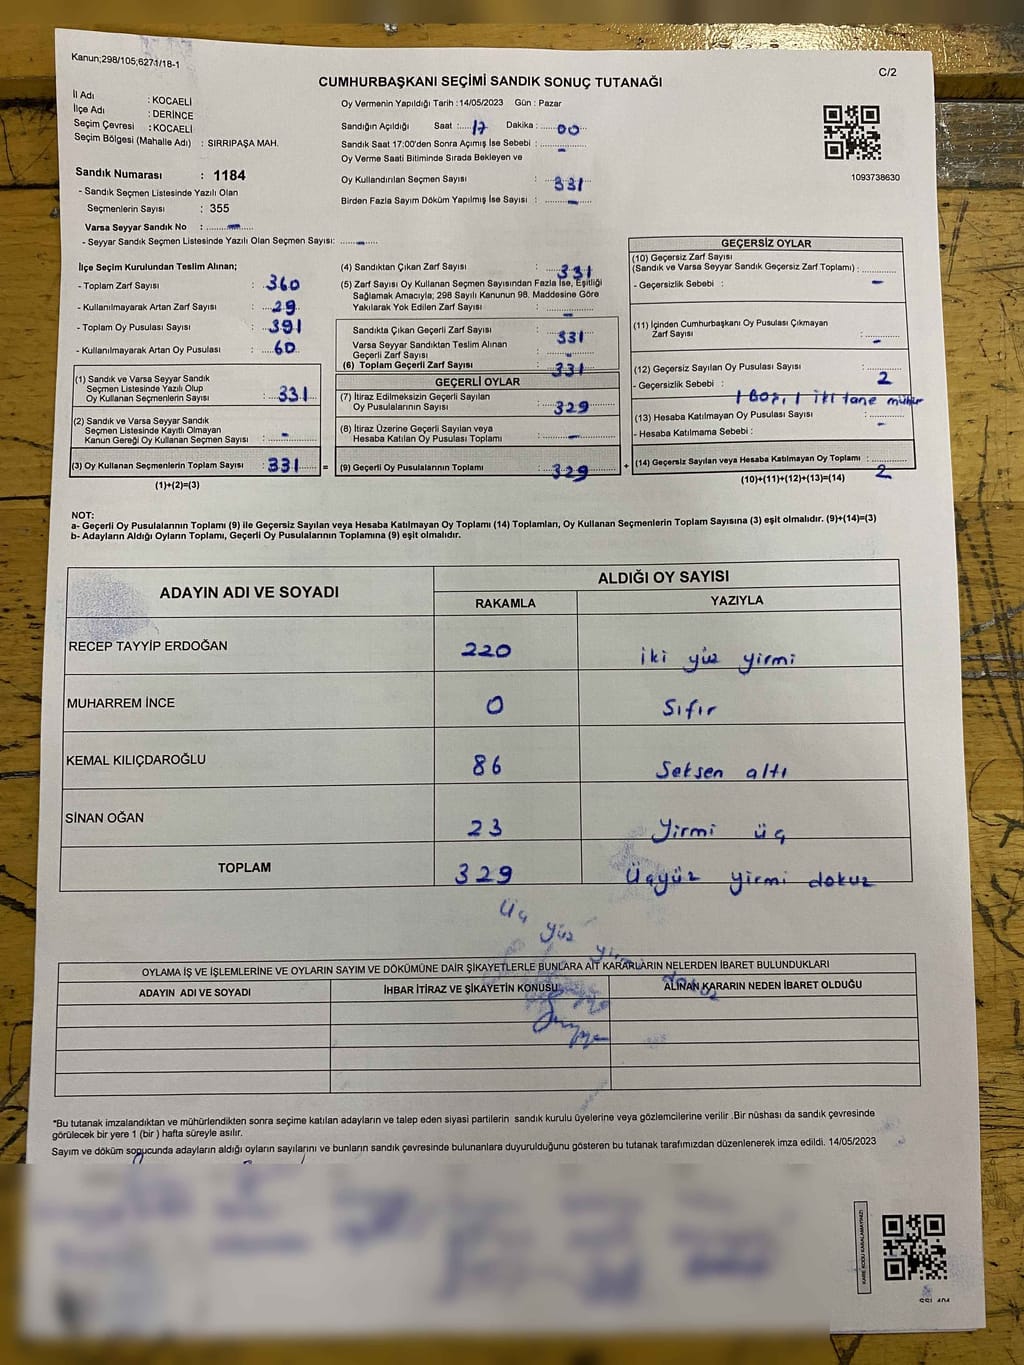 Kanun;298/105;6271/18-1
C/2
CUMHURBAŞKANI SEÇİMİ SANDIK SONUÇ TUTANAĞI
İl Adı : KOCAELİ
İlçe Adı : DERİNCE
Seçim Çevresi : KOCAELİ
Seçim Bölgesi (Mahalle Adı) : SIRRIPAŞA MAH.
Sandık Numarası : 1184
- Sandık Seçmen Listesinde Yazılı Olan
Seçmenlerin Sayısı : 355
Varsa Seyyar Sandık No : -
- Seyyar Sandık Seçmen Listesinde Yazılı Olan Seçmen Sayısı: -
Oy Vermenin Yapıldığı Tarih : 14/05/2023 Gün : Pazar
Sandığın Açıldığı Saat : 17 Dakika : 00
Sandık Saat 17:00'den Sonra Açımış İse Sebebi : -
Oy Verme Saati Bitiminde Sırada Bekleyen ve
Oy Kullandırılan Seçmen Sayısı : 331
Birden Fazla Sayım Döküm Yapılmış İse Sayısı : -
1093738630
İlçe Seçim Kurulundan Teslim Alınan;
- Toplam Zarf Sayısı : 360
- Kullanılmayarak Artan Zarf Sayısı : 29
- Toplam Oy Pusulası Sayısı : 391
- Kullanılmayarak Artan Oy Pusulası : 60
(1) Sandık ve Varsa Seyyar Sandık
Seçmen Listesinde Yazılı Olup
Oy Kullanan Seçmenlerin Sayısı : 331
(2) Sandık ve Varsa Seyyar Sandık
Seçmen Listesinde Kayıtlı Olmayan
Kanun Gereği Oy Kullanan Seçmen Sayısı : -
(3) Oy Kullanan Seçmenlerin Toplam Sayısı : 331 =
(1)+(2)=(3)
(4) Sandıktan Çıkan Zarf Sayısı : 331
(5) Zarf Sayısı Oy Kullanan Seçmen Sayısından Fazla İse, Eşitliği
Sağlamak Amacıyla; 298 Sayılı Kanunun 98. Maddesine Göre
Yakılarak Yok Edilen Zarf Sayısı : -
Sandıkta Çıkan Geçerli Zarf Sayısı : 331
Varsa Seyyar Sandıktan Teslim Alınan
Geçerli Zarf Sayısı : -
(6) Toplam Geçerli Zarf Sayısı : 331
GEÇERLİ OYLAR
(7) İtiraz Edilmeksizin Geçerli Sayılan
Oy Pusulalarının Sayısı : 329
(8) İtiraz Üzerine Geçerli Sayılan veya
Hesaba Katılan Oy Pusulası Toplamı : -
(9) Geçerli Oy Pusulalarının Toplamı : 329 +
GEÇERSİZ OYLAR
(10) Geçersiz Zarf Sayısı
(Sandık ve Varsa Seyyar Sandık Geçersiz Zarf Toplamı) :
- Geçersizlik Sebebi : -
(11) İçinden Cumhurbaşkanı Oy Pusulası Çıkmayan
Zarf Sayısı : -
(12) Geçersiz Sayılan Oy Pusulası Sayısı : 2
- Geçersizlik Sebebi : 1 Boş, 1 iki tane mühür
(13) Hesaba Katılmayan Oy Pusulası Sayısı : -
- Hesaba Katılmama Sebebi :
(14) Geçersiz Sayılan veya Hesaba Katılmayan Oy Toplamı : 2
(10)+(11)+(12)+(13)=(14)
NOT:
a- Geçerli Oy Pusulalarının Toplamı (9) ile Geçersiz Sayılan veya Hesaba Katılmayan Oy Toplamı (14) Toplamları, Oy Kullanan Seçmenlerin Toplam Sayısına (3) eşit olmalıdır. (9)+(14)=(3)
b- Adayların Aldığı Oyların Toplamı, Geçerli Oy Pusulalarının Toplamına (9) eşit olmalıdır.
ADAYIN ADI VE SOYADI
ALDIĞI OY SAYISI
RAKAMLA YAZIYLA
RECEP TAYYİP ERDOĞAN 220 iki yüz yirmi
MUHARREM İNCE 0 Sıfır
KEMAL KILIÇDAROĞLU 86 Seksen altı
SİNAN OĞAN 23 Yirmi üç
TOPLAM 329 Üçyüz yirmi dokuz
Üç yüz yirmi dokuz
OYLAMA İŞ VE İŞLEMLERİNE VE OYLARIN SAYIM VE DÖKÜMÜNE DAİR ŞİKAYETLERLE BUNLARA AİT KARARLARIN NELERDEN İBARET BULUNDUKLARI
ADAYIN ADI VE SOYADI
İHBAR İTİRAZ VE ŞİKAYETİN KONUSU
ALINAN KARARIN NEDEN İBARET OLDUĞU
*Bu tutanak imzalandıktan ve mühürlendikten sonra seçime katılan adayların ve talep eden siyasi partilerin sandık kurulu üyelerine veya gözlemcilerine verilir .Bir nüshası da sandık çevresinde
görülecek bir yere 1 (bir ) hafta süreyle asılır.
Sayım ve döküm sonucunda adayların aldığı oyların sayılarını ve bunların sandık çevresinde bulunanlara duyurulduğunu gösteren bu tutanak tarafımızdan düzenlenerek imza edildi. 14/05/2023
KARE KODU KARALAMAYINIZ!